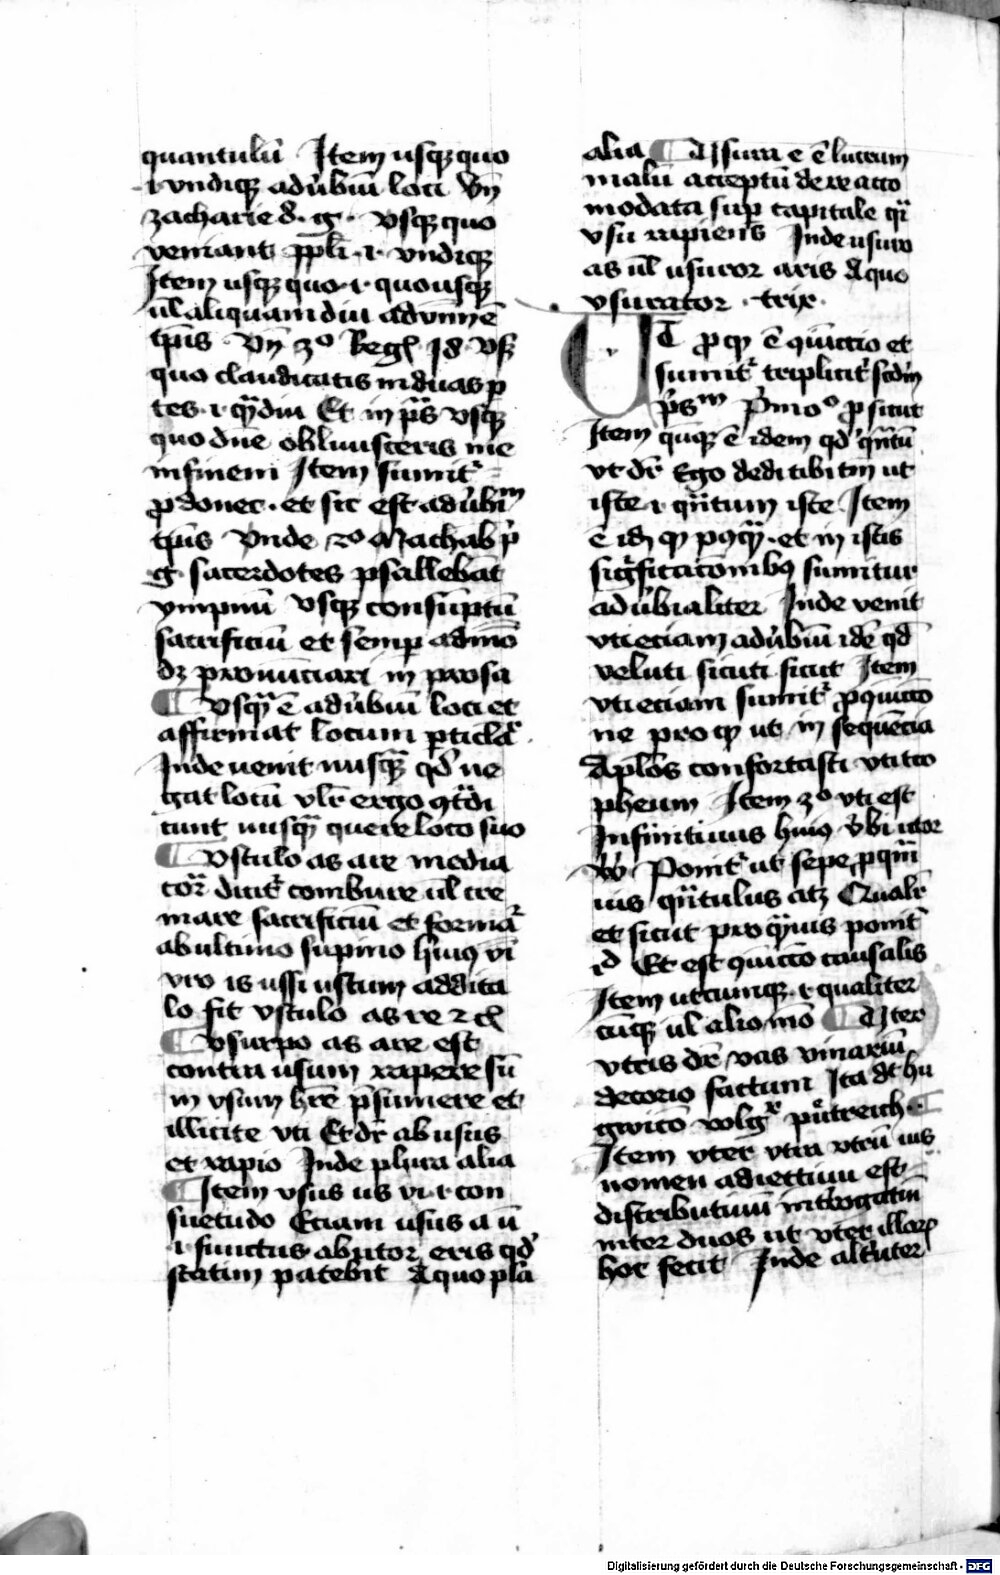 quantulū Item usqꝫ quo
.i. vndiqꝫ adūbiū loci Vn̄
zacharie 8. g. vsqꝫ quo
veniant ppl̄i .i. vndiqꝫ
Item usqꝫ quo .i. quousqꝫ
ul̄ aliquamdiu
tp̄is Vn̄ 3º Reg 18 Vsqꝫ
quo claudicatis in duas p
tes .i. qm̄diu Et in ps̄ vsqꝫ
quo dn̄e obliuisceris me
in finem Item sumit᷑
pro donec . et sic est adūbiū
tp̄is Vnde 2º Machab p̄
g. sacerdotes psallebāt
ympnū Vsqꝫ consūptū
sacrificiū et semp admō
dꝫ pronūciari in prosa
Vsqm̄ ē adūbiū loci et
affirmat locum pticlar̄
Inde uenit nusqm̄ qd̓ ne
gat locū vlr̄ ergo
cunt nusqm̄ quere loco suo
Vstulo as are media
cor̄ dicit᷑ comburere ul̄ cre
mare sacrificiū et formar̄
ab ultimo supino huiꝰ vī
vro is ussi ustum addita
lo fit vstulo as re
Vsurpo as are est
contra usum rapere sū
in vsum hr̄e p̄sumere et
illicite vti Et dr̄ ab usus
et rapio Inde plura alia
Item vsus us vi .i. con
suetudo Etiam usus a ū
.i. functus abutor eris qd̓
statim patebit A quo pla
alia Usura e ē lucrum
malū acceptū de re acco
modata sup capitale qī
vsu rapiens Inde usuro
as ul̄ usuror aris A quo
vsurator . trix .
UT pro qꝫ ē qiūctio et
sumit᷑ triplicit᷑ scd̄m
p̄s Pͥmoº pro sicut
Item ē idem qd̓ qn̄tū
vt dr̄ Ego dedi tibi tm̄ ut
iste .i. qn̄tum iste Item
ē id postqm̄ . et in istis
sigficacōnibꝰ sumitur
adūbialiter Inde venit
uti eciam adūbiū idē qd̓
veluti sicuti sicut Item
uti eciam sumit᷑ pro qiūcco
ne pro ut in sequēcia
Apl̄os confortasti uti tro
pheum Item 3º uti est
Infinitiuus huiꝰ v̓bi utor
Ponit᷑ ut sepe pro
uis qn̄tulus Qual̄r
et sicut pro qm̄uis ponit᷑
id Et est qiūcco causalis
Item utcunqꝫ .i. qualiter
cūqꝫ ul̄ alio mō Uter
vtris dr̄ vas vinariū
de corio factum
volgr̄ pūtreich
Item vter vtra vtrū ius
nomen adiectiuū est
distributiuū int̓rogatiū
inter duos ut vter illorꝝ
hoc fecit Inde alt̓uter